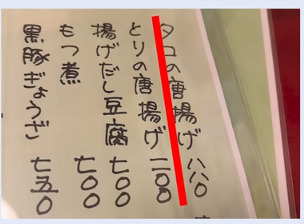 タコの唐揚げ 八八〇
とりの唐揚げ 一〇〇
揚げだし豆腐 七〇〇
もつ煮 七〇〇
黒豚ぎょうざ 七五〇